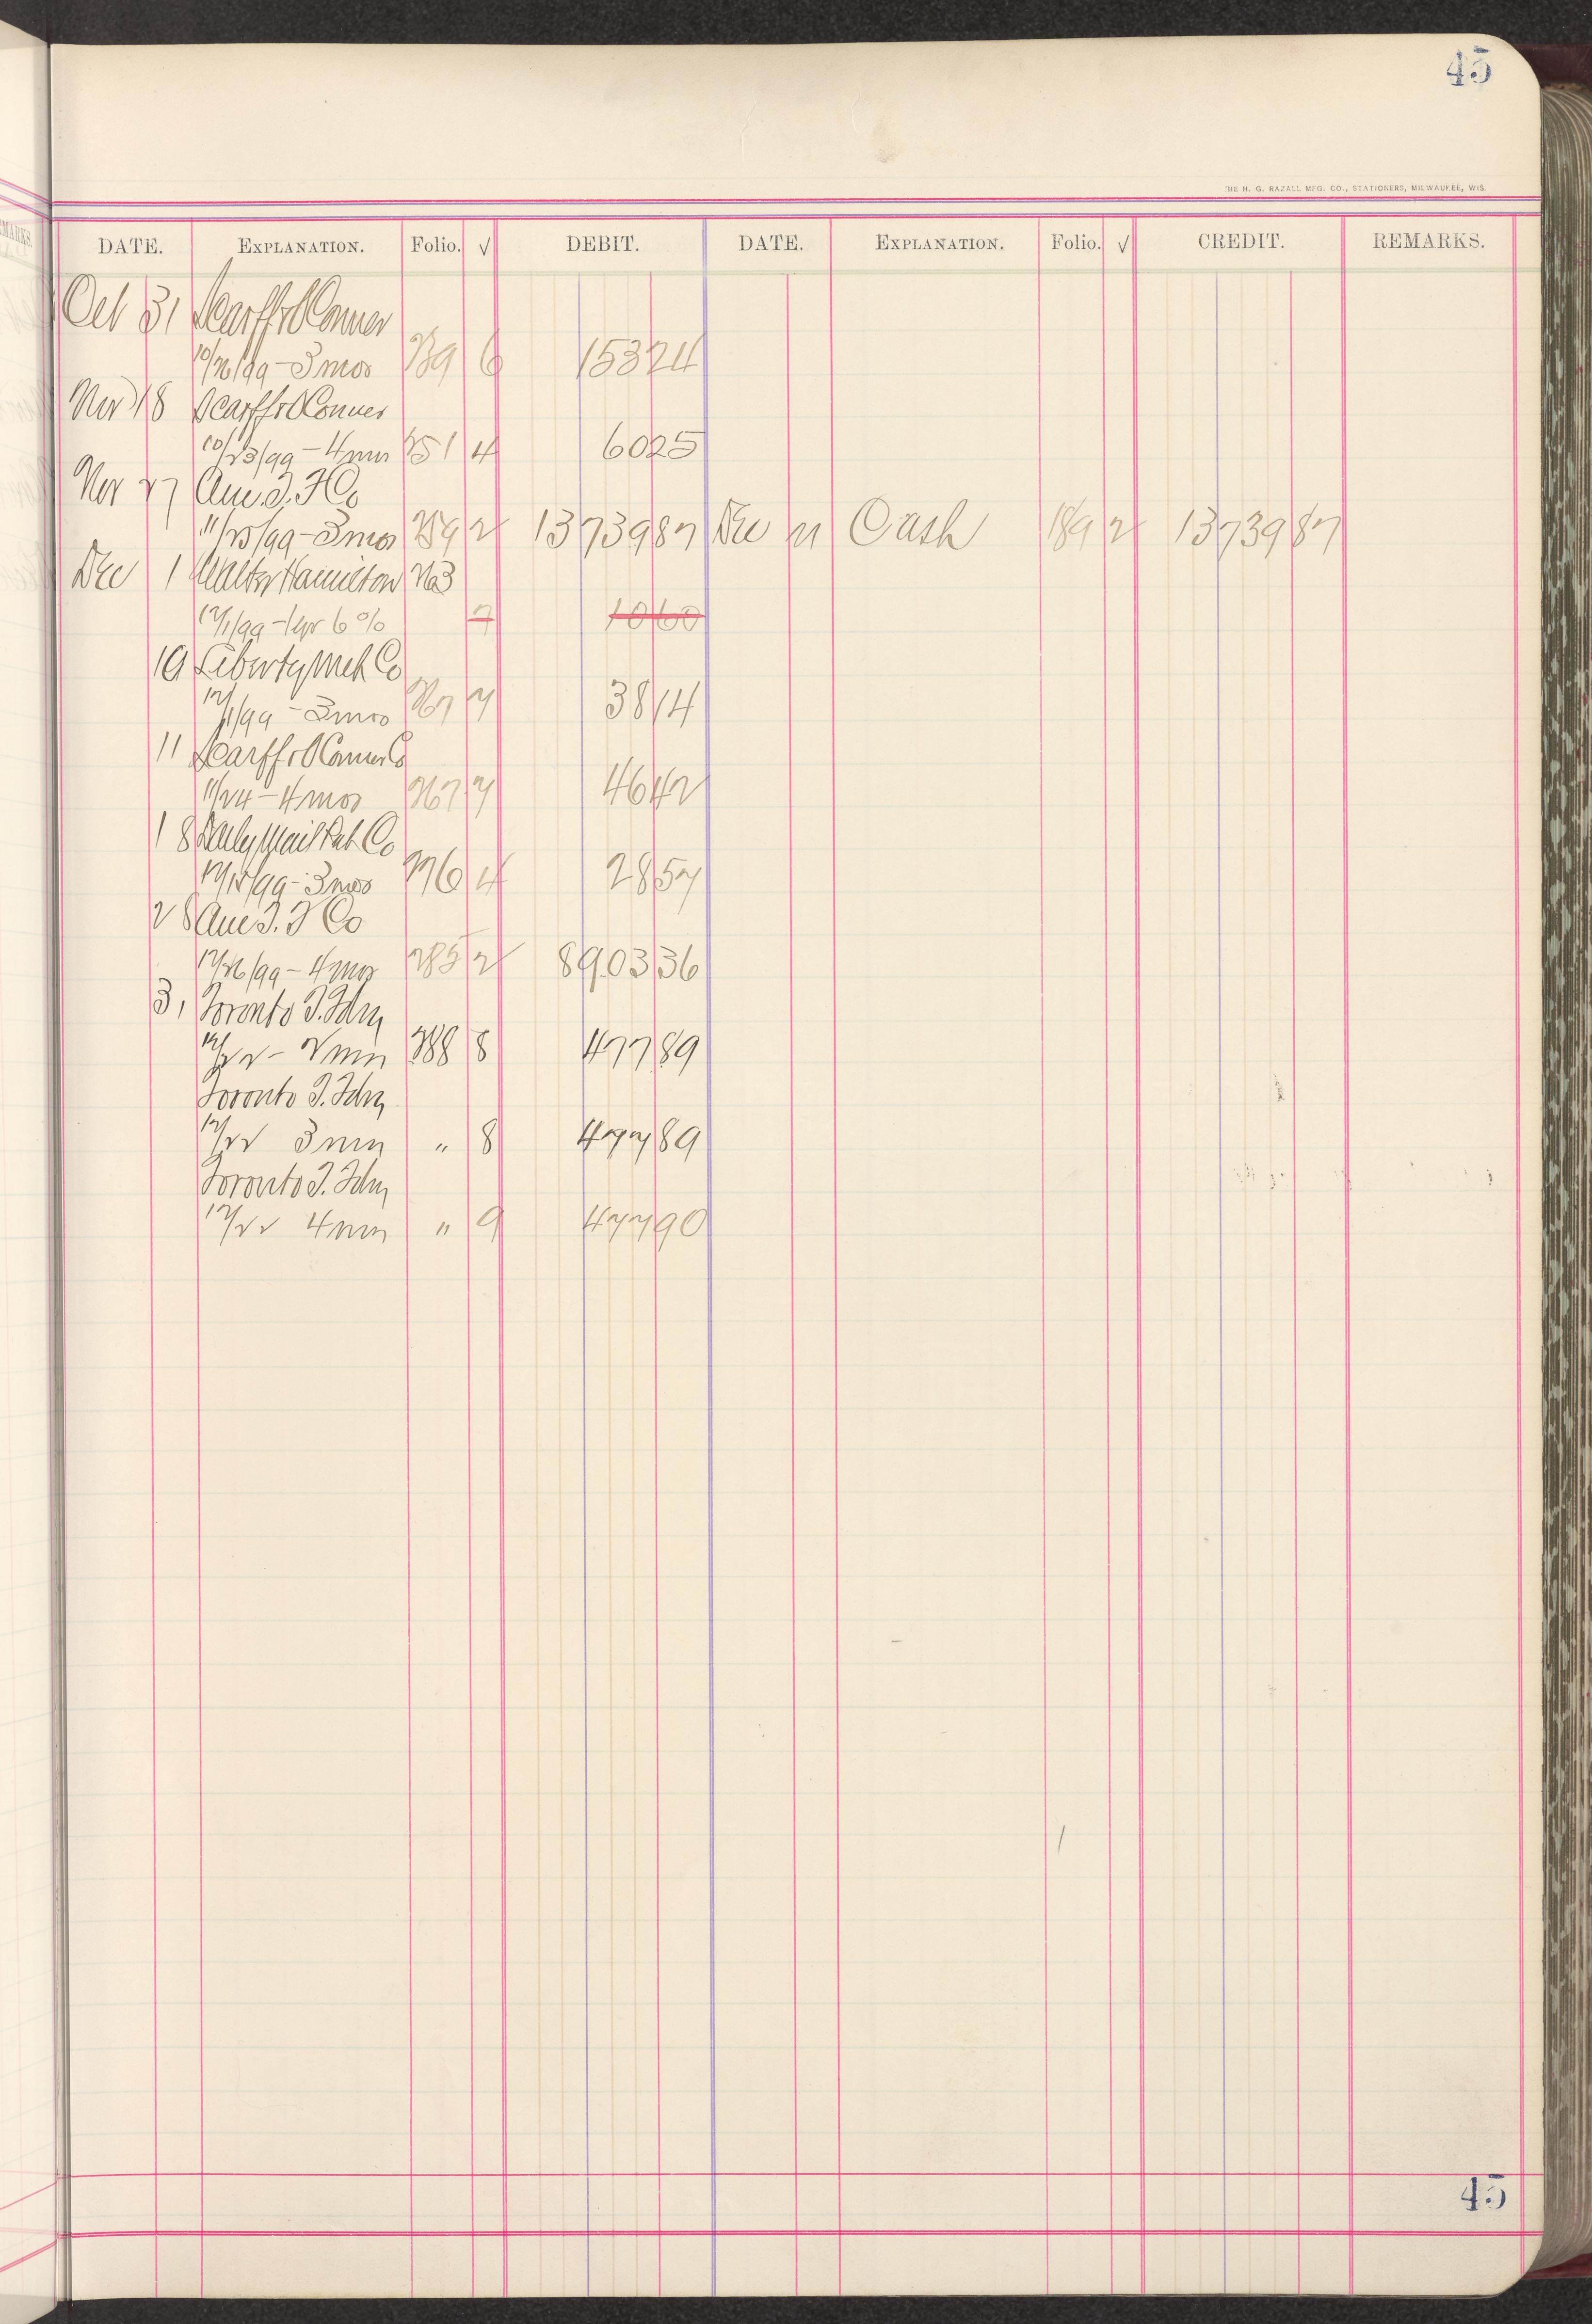 45
THE H. G. RAZALL MFG. CO., STATIONERS, MILWAUKEE, WIS.
DATE. EXPLANATION. Folio. √ DEBIT. DATE. EXPLANATION. Folio. √ CREDIT. REMARKS.
Oct 31 Scarff & O'Connor
10/26/99 - 3 mos 239 6 153 24
Nov 18 Scarff & O'Connor
10/23/99 - 4 mos 251 4 60 25
Nov 27 Am. T. F Co
11/25/99 - 3 mos 259 2 13739 87 Dec 21 Cash 189 2 13739 87
Dec 1 Walter Hamilton 263
12/1/99 - 1 yr 6% 7 10 60
19 Liberty Co
12/1/99 - 3 mos 267 7 38 14
11 Scarff & O'Connor Co
11/24 - 4 mos 267 7 46 42
18 Daily Mail Pub Co
12/15/99 - 3 mos 276 4 28 57
28 Am T. F Co
12/26/99 - 4 mos 285 2 8903 36
31 Toronto T. Fdry
12/22 - 2 mos 288 8 477 89
Toronto T. Fdry
12/22 3 mos " 8 477 89
Toronto T. Fdry
12/22 4 mos " 9 477 90
45